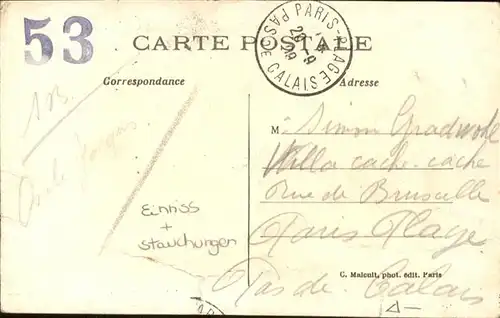 53
CARTE POSTALE
PARIS-PLAGE
PAS DE CALAIS
Correspondance
Adresse
M Simon Gradwohl
Villa cache-cache
Rue de Bruxelle
Paris Plage
Pas de Calais
Einriss
+
Stauchungen
C. Malcuit, phot. édit. Paris